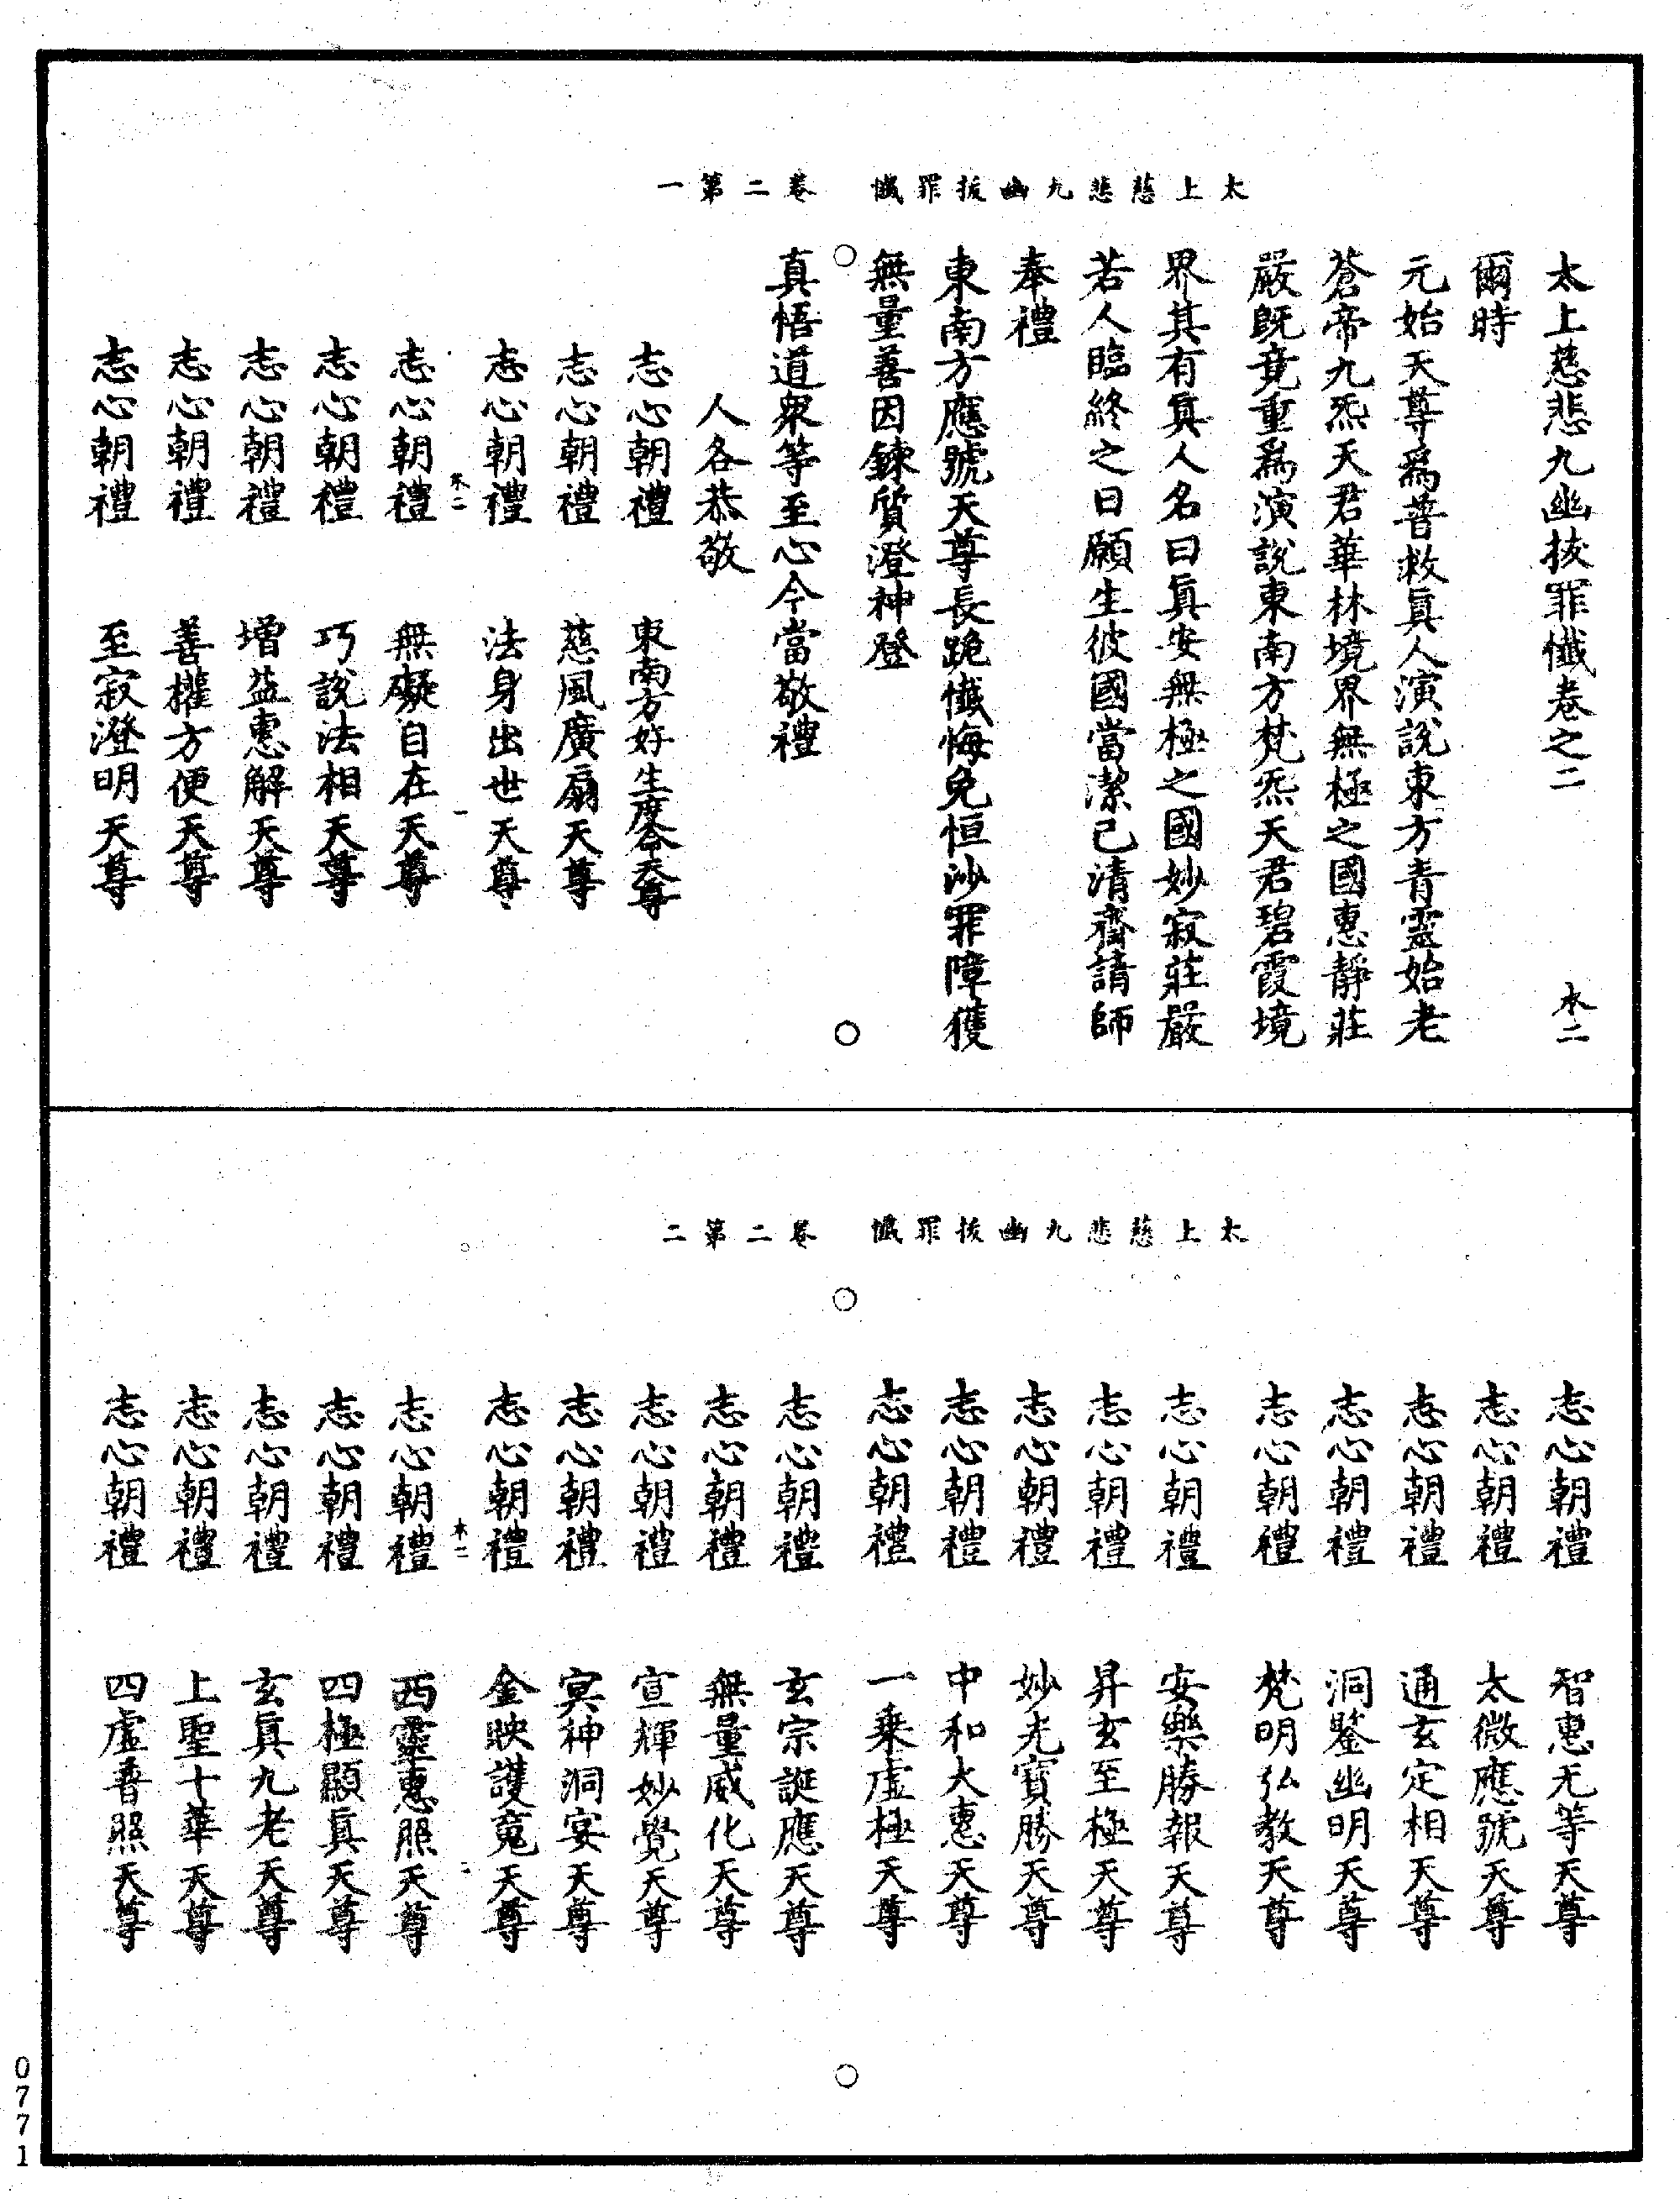 太上慈悲九幽拔罪懺　卷二第一
太上慈悲九幽拔罪懺卷之二　木二
爾時
元始天尊爲普救眞人演說東方青靈始老
蒼帝九炁天君華林境界無極之國惠靜莊
嚴既竟重爲演說東南方梵炁天君碧霞境
界其有眞人名曰眞安無極之國妙寂莊嚴
若人臨終之日願生彼國當潔己清齋請師
奉禮
東南方應號天尊長跪懺悔免恒沙罪障獲
無量善因鍊質澄神登
真悟道衆等至心今當敬禮
人各恭敬
志心朝禮　東南方好生度命天尊
志心朝禮　慈風廣扇天尊
志心朝禮　法身出世天尊
木二　一
志心朝禮　無礙自在天尊
志心朝禮　巧說法相天尊
志心朝禮　增益惠解天尊
志心朝禮　善權方便天尊
志心朝禮　至寂澄明天尊
太上慈悲九幽拔罪懺　卷二第二
志心朝禮　智惠无等天尊
志心朝禮　太微應號天尊
志心朝禮　通玄定相天尊
志心朝禮　洞鑒幽明天尊
志心朝禮　梵明弘教天尊
志心朝禮　安樂勝報天尊
志心朝禮　昇玄至極天尊
志心朝禮　妙光寶勝天尊
志心朝禮　中和大惠天尊
志心朝禮　一乘虛極天尊
志心朝禮　玄宗誕應天尊
志心朝禮　無量威化天尊
志心朝禮　宣輝妙覺天尊
志心朝禮　冥神洞宴天尊
志心朝禮　金映護竟天尊
木二　二
志心朝禮　西靈惠照天尊
志心朝禮　四極顯真天尊
志心朝禮　玄眞九老天尊
志心朝禮　上聖十華天尊
志心朝禮　四虛普照天尊
0771